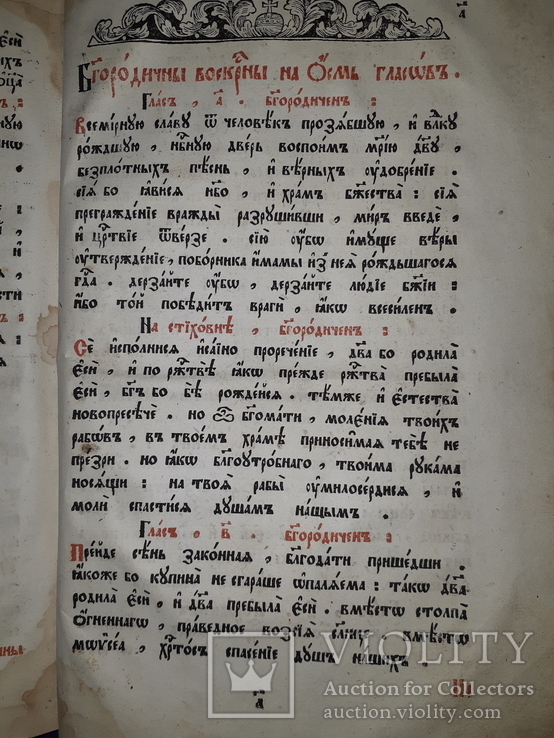 ҂а
Бг҃оро́дичны воскр҃ны на О҆́смь гласѡ́въ .
Гла́съ , а҃ . бг҃оро́диченъ :
Всемі́рную сла́ву ѿ человѣ́къ прозѧ́бшую , и҆ влⷣку
ро́ждшую , нбⷭ҇ную две́рь воспои́мъ мр҃і́ю дв҃у ,
безпло́тныхъ пѣ́снь , и҆ вѣ́рныхъ ᲂу҆добре́ние .
сїѧ́ бо ꙗ҆ви́сѧ нб҃о , и҆ хра́мъ бж҃ества̀ : сїѧ̀
прегражде́нїе вражды̀ разруши́вши , ми́ръ введѐ ,
и҆ црⷭ҇твїе ѿве́рзе . сїю̀ ᲂу҆́бѡ и҆му́ще вѣ́ры
ᲂу҆твержде́нїе , побо́рника и҆́мамы и҆з̾ неѧ̀ ро́ждьшагосѧ
гдⷭ҇а . дерза́йте ᲂу҆́бѡ , дерза́йте лю́дїе бж҃їи :
и҆́бо то́й побѣди́тъ врагѝ , ꙗ҆́кѡ всеси́ленъ .
На стїхо́внѣ , бг҃оро́диченъ :
Сѐ и҆спо́лнисѧ и҆са́їно прорече́нїе , дв҃а бо родила̀
є҆сѝ , и҆ по ржⷭ҇твѣ̀ ꙗ҆́кѡ пре́жде ржⷭ҇тва̀ пребыла̀
є҆сѝ , бг҃ъ бо бѣ̀ рожде́йсѧ . тѣ́мже и҆ є҆стества̀
новопресѣчѐ . но ѽ бг҃ома́ти , моле́нїѧ твои́хъ
рабѡ́въ , в̾ твое́мъ хра́мѣ приноси́маѧ тебѣ̀ не
пре́зри . но ꙗ҆́кѡ блг҃оутро́бнаго , твои́ма рука́ма
носѧ́щи : на твоѧ̀ рабы̀ ᲂу҆милосе́рдисѧ , и҆
молѝ спасти́сѧ душа́мъ на́шымъ .
Гла́съ , в҃ . бг҃оро́диченъ :
Пре́йде сѣ́нь зако́ннаѧ , блг҃ода́ти прише́дши .
ꙗ҆́коже бо купина̀ не сгара́ше ѡ҆палѧ́ема : та́кѡ дв҃а
родила̀ є҆сѝ , и҆ дв҃а пребыла̀ є҆сѝ . вмѣ́стѡ столпа̀
ѻ҆́гненнагѡ , пра́ведное возсїѧ̀ со́лнце . вмѣ́стѡ
мѡѷсе́а , хрⷭ҇то́съ спасе́нїе ду́шъ на́шихъ .
VIOLITY
Auction for Collectors
auction.violity.com